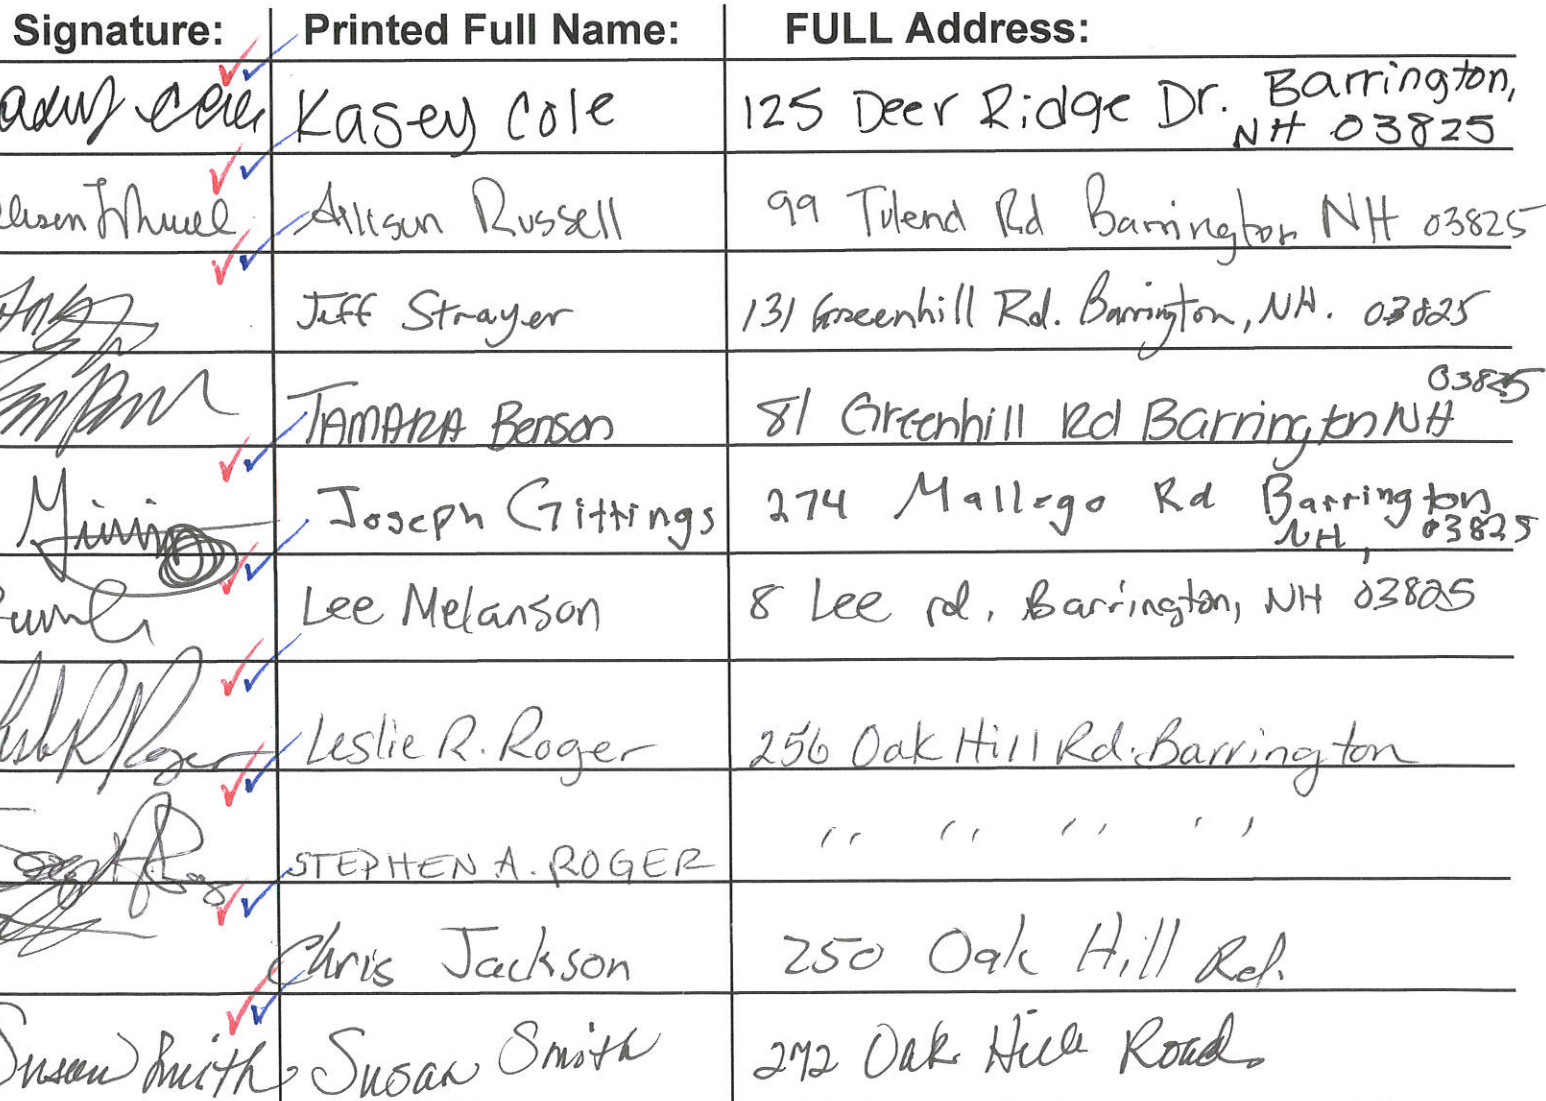 Signature: Printed Full Name: FULL Address:
Kasey Cole 125 Deer Ridge Dr. Barrington,
NH 03825
Allison Russell 99 Tolend Rd Barrington NH 03825
Jeff Strayer 131 Greenhill Rd. Barrington, NH. 03825
03825
TAMARA Benson 81 Greenhill Rd Barrington NH
Joseph Gittings 274 Mallego Rd Barrington
NH, 03825
Lee Melanson 8 Lee rd, Barrington, NH 03825
Leslie R. Roger 256 Oak Hill Rd. Barrington
STEPHEN A. ROGER ,, ,, ,, ,,
Chris Jackson 250 Oak Hill Rd.
Susan Smith Susan Smith 272 Oak Hill Road